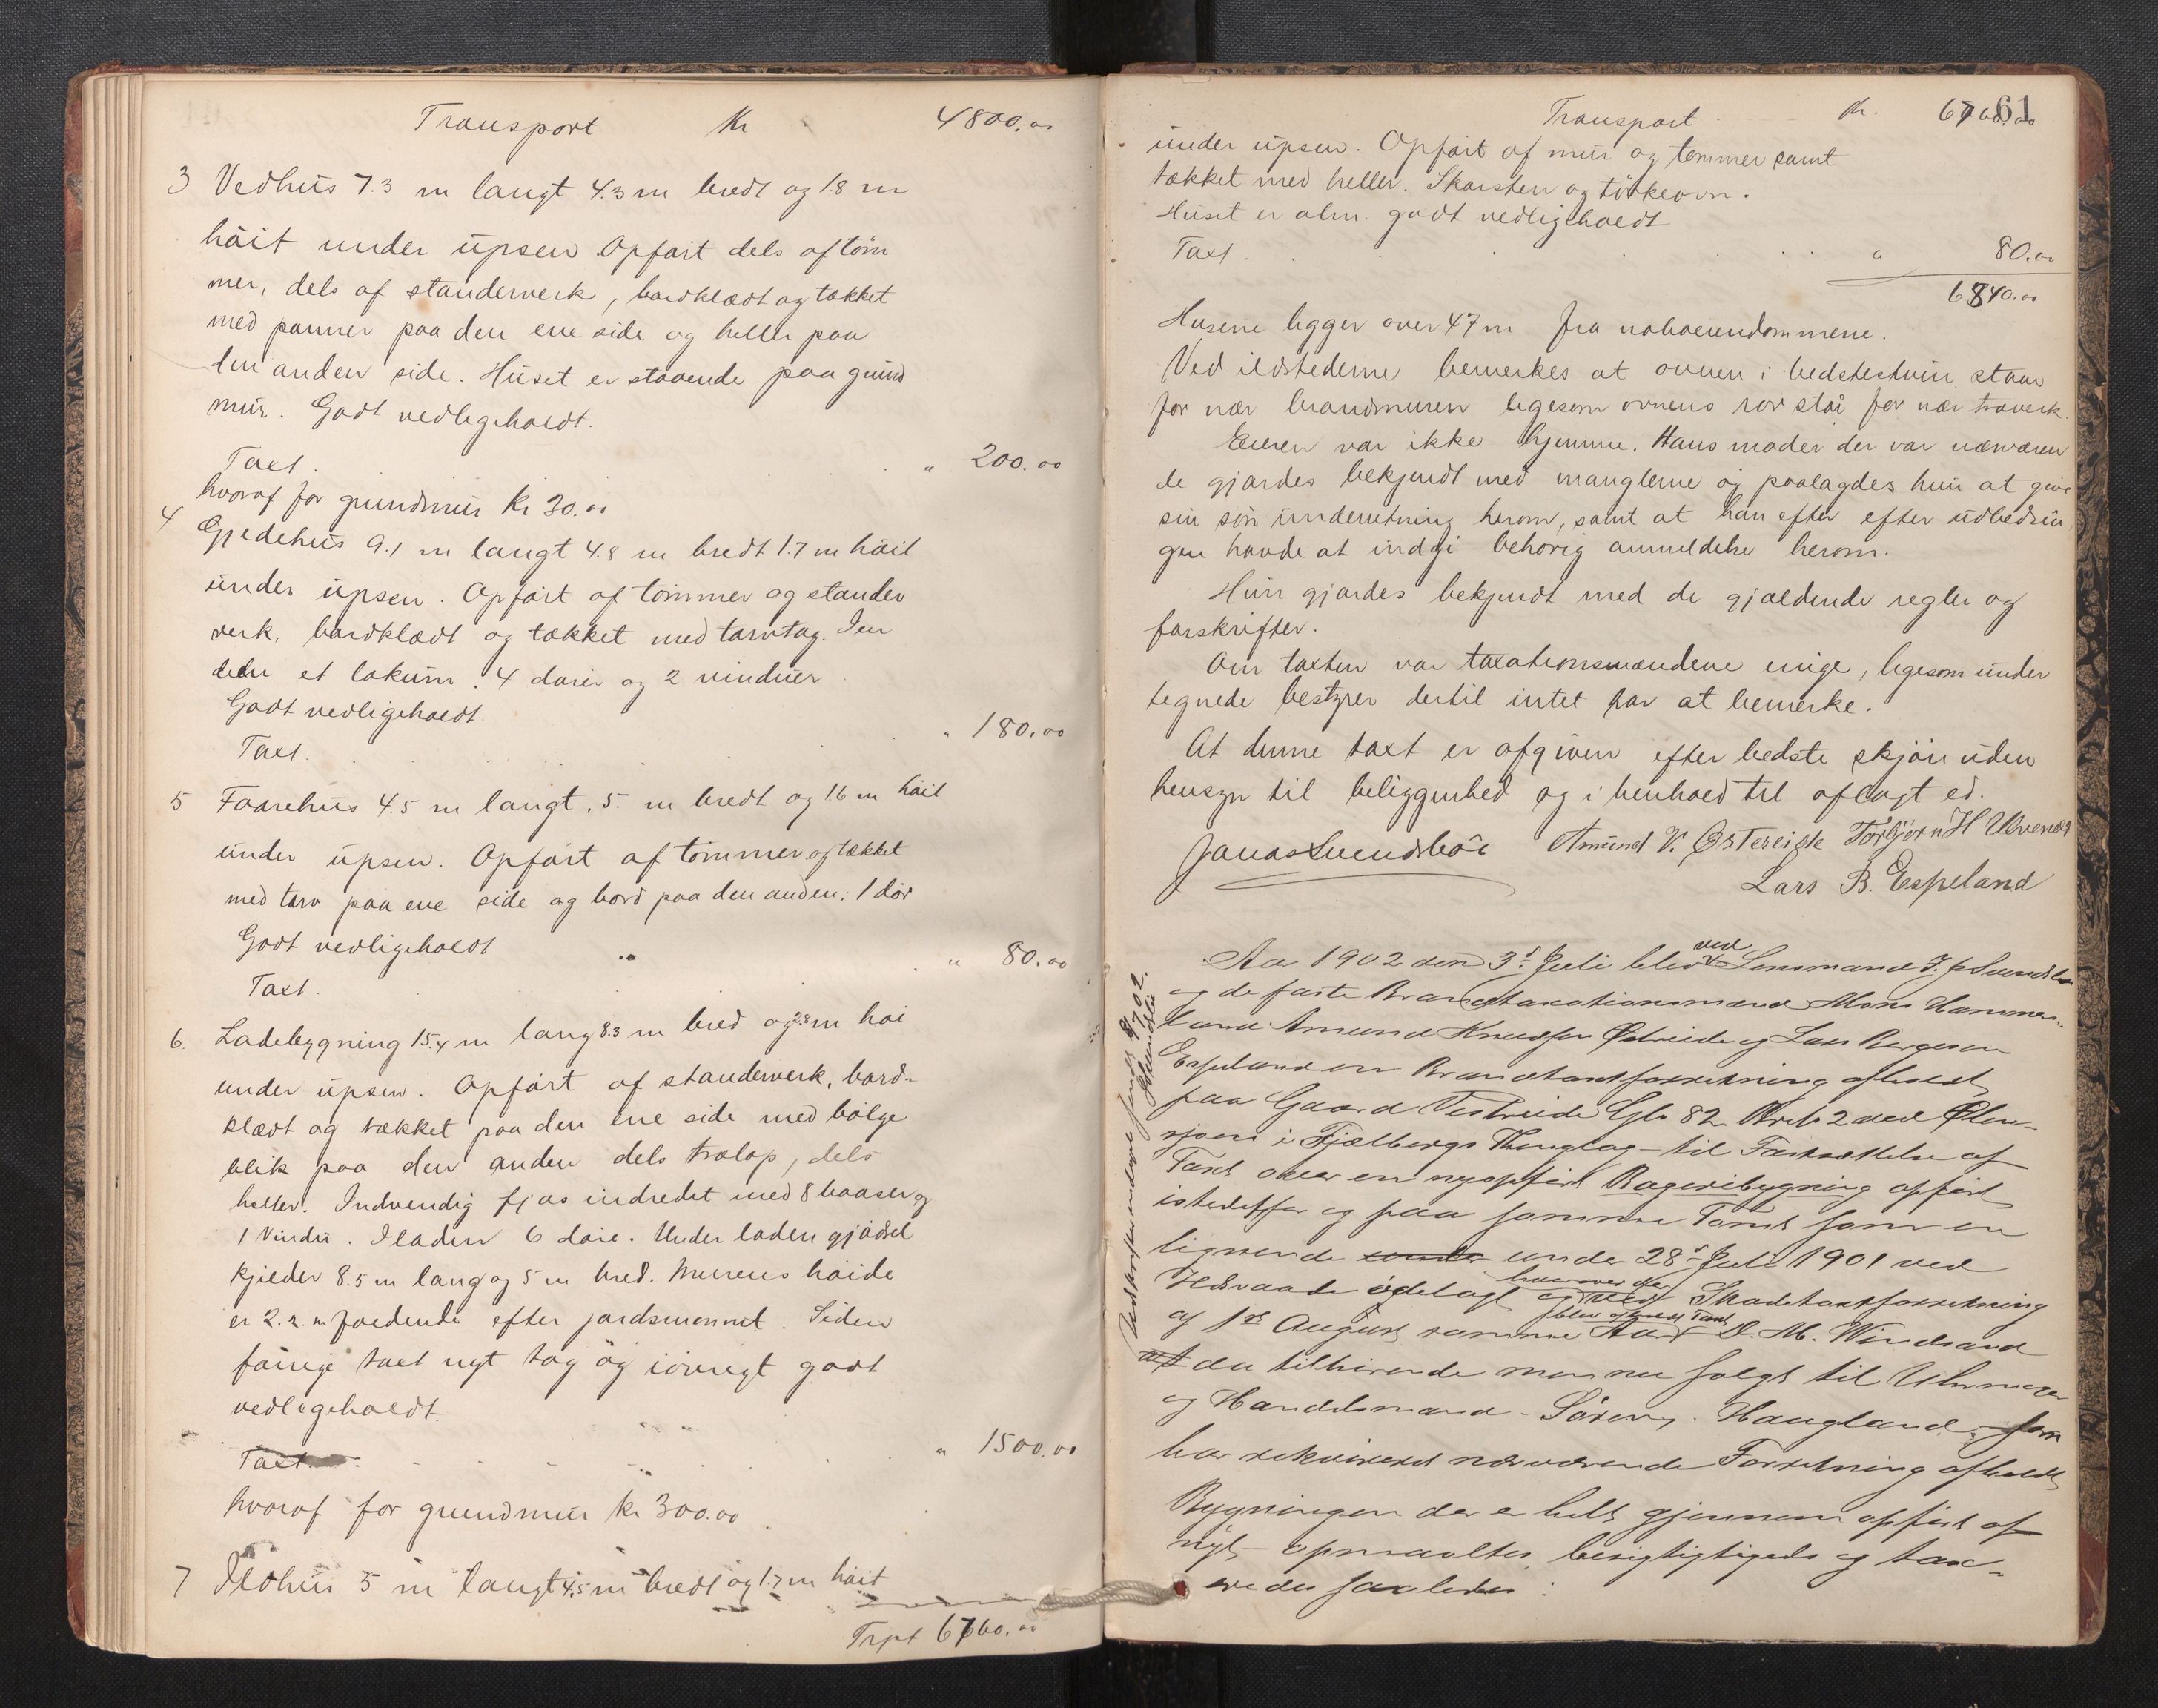 Transport Kr 4800.00
3 Vedhus 7.3 m langt 4.3 m bredt og 1.8 m
höit under upsen. Opfört dels af töm
mer, dels af standerverk, bordklædt og tækket
med panner paa den ene side og heller paa
den anden side. Huset er staaende paa grund
mur. Godt vedligeholdt.
Taxt. " 200.00
hvoraf for grundmur Kr 30.00
4 Gjedehus 9.1 m langt 4.8 m bredt 1.7 m höit
under upsen. Opfört af tömmer og stander
verk, bordklædt og tækket med torvtag. Inn
deler et lokum. 4 dörer og 2 vinduer
Godt vedligeholdt
Taxt. " 180.00
5 Faarehus 4.5 m langt, 5. m bredt og 1.6 m höit
under upsen. Opfört af tömmer og tækket
med torv paa ene side og bord paa den anden. 1 dör
Godt vedligeholdt
Taxt. " 80.00
6. Ladebygning 15.4 m lang 8.3 m bred og 2.8 m höi
under upsen. Opfört af standerverk, bord-
klædt og tækket paa den ene side med bölge
blik paa den anden dels trælap, dels
heller. Indvendig fjøs indredet med 8 baaser og
1 Vindu. I laden 6 döre. Under laden gjödsel
kjelder 8.5 m lang og 5 m bred. Murens höide
er 2.2. m faldende efter jordsmonnet. Siden
forrige taxt nyt tag og iövrigt godt
vedligeholdt.
Taxt. " 1500.00
hvoraf for grundmur Kr 300.00
7 Ildhus 5 m langt 4.5 m bredt og 1.7 m höit
Trpt 6760.00
61
Transport Kr. 6760.00
under upsen. Opfört af mur og tømmer samt
tækket med heller. Skorsten og törkeovn.
Huset er alm. godt vedligeholdt
Taxt. " 80.00
6840.00
Husene ligger over 47 m fra naboeiendommene.
Ved ildstederne bemerkes at ovnen i bedstestuen staar
for nær brandmuren ligesom ovnens rør står for nær træverk.
Eieren var ikke hjemme. Hans moder der var nærværen
de gjordes bekjendt med manglerne og paalagdes hun at give
sin sön underretning herom, samt at han efter efter udbedrin
gen havde at indgi behörig anmeldelse herom.
Hun gjordes bekjendt med de gjældende regler og
forskrifter.
Om taxten var taxationsmændene enige, ligesom under
tegnede bestyrer dertil intet har at bemerke.
At denne taxt er afgiven efter bedste skjön uden
hensyn til beliggenhed og i henhold til aflagt ed.
Jonas Svendsböe Amund K. Østereide Torbjörn H
Lars B. Espeland
Aar 1902 den 3d Juli blev ved Lensmand J. Svendsbøe
og de faste Brandtaxationsmænd Mons Hammer-
land Amund Knudsen Østreide og Lars Bergesen
Espeland en Brandtaxtforretning afholdt
paa Gaard Vestreide Gb 82 Brk 2 ved Ølen-
sjøen i Fjælbergs Thinglag – til Fastsættelse af
Taxt over en nyopført Bageribygning opført
istedetfor og paa samme Tomt som en
lignende under 28d Juli 1901 ved
Ildsvaade ödelagt hvorover der ved Skadetaxtforretning
af 1ste August samme Aar blev afholdt Taxt D. M. Windsand
da tilhörende men nu solgt til Uhrmager
og Handelsmand Sören Haugland, som
har rekvireret nærværende Forretning afholdt
Bygningen der er helt gjennem opført af
nyt opmaaltes besigtigedes og tax-
eredes saaledes: